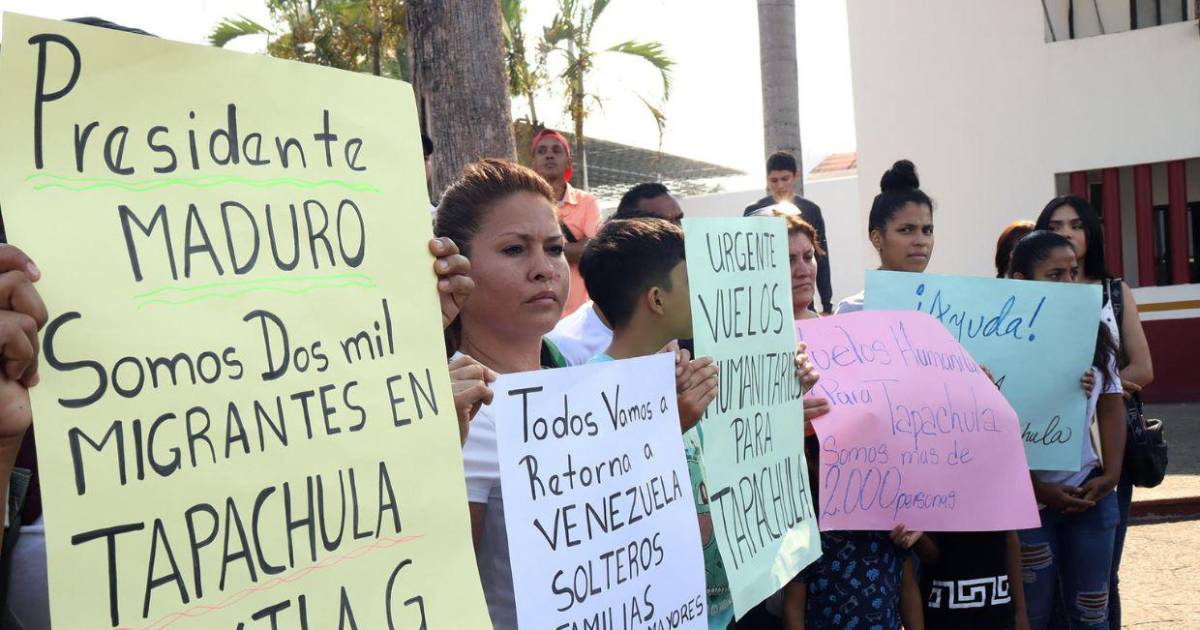 Presidente
MADURO
Somos Dos mil
MIGRANTES EN
TAPACHULA
Todos Vamos a
Retorna a
VENEZUELA
SOLTEROS
FAMILIAS
MAYORES
URGENTE
VUELOS
HUMANITARIOS
PARA
TAPACHULA
Vuelos Humani
Para
Tapachula
Somos mas de
2.000 personas
¡Ayuda!